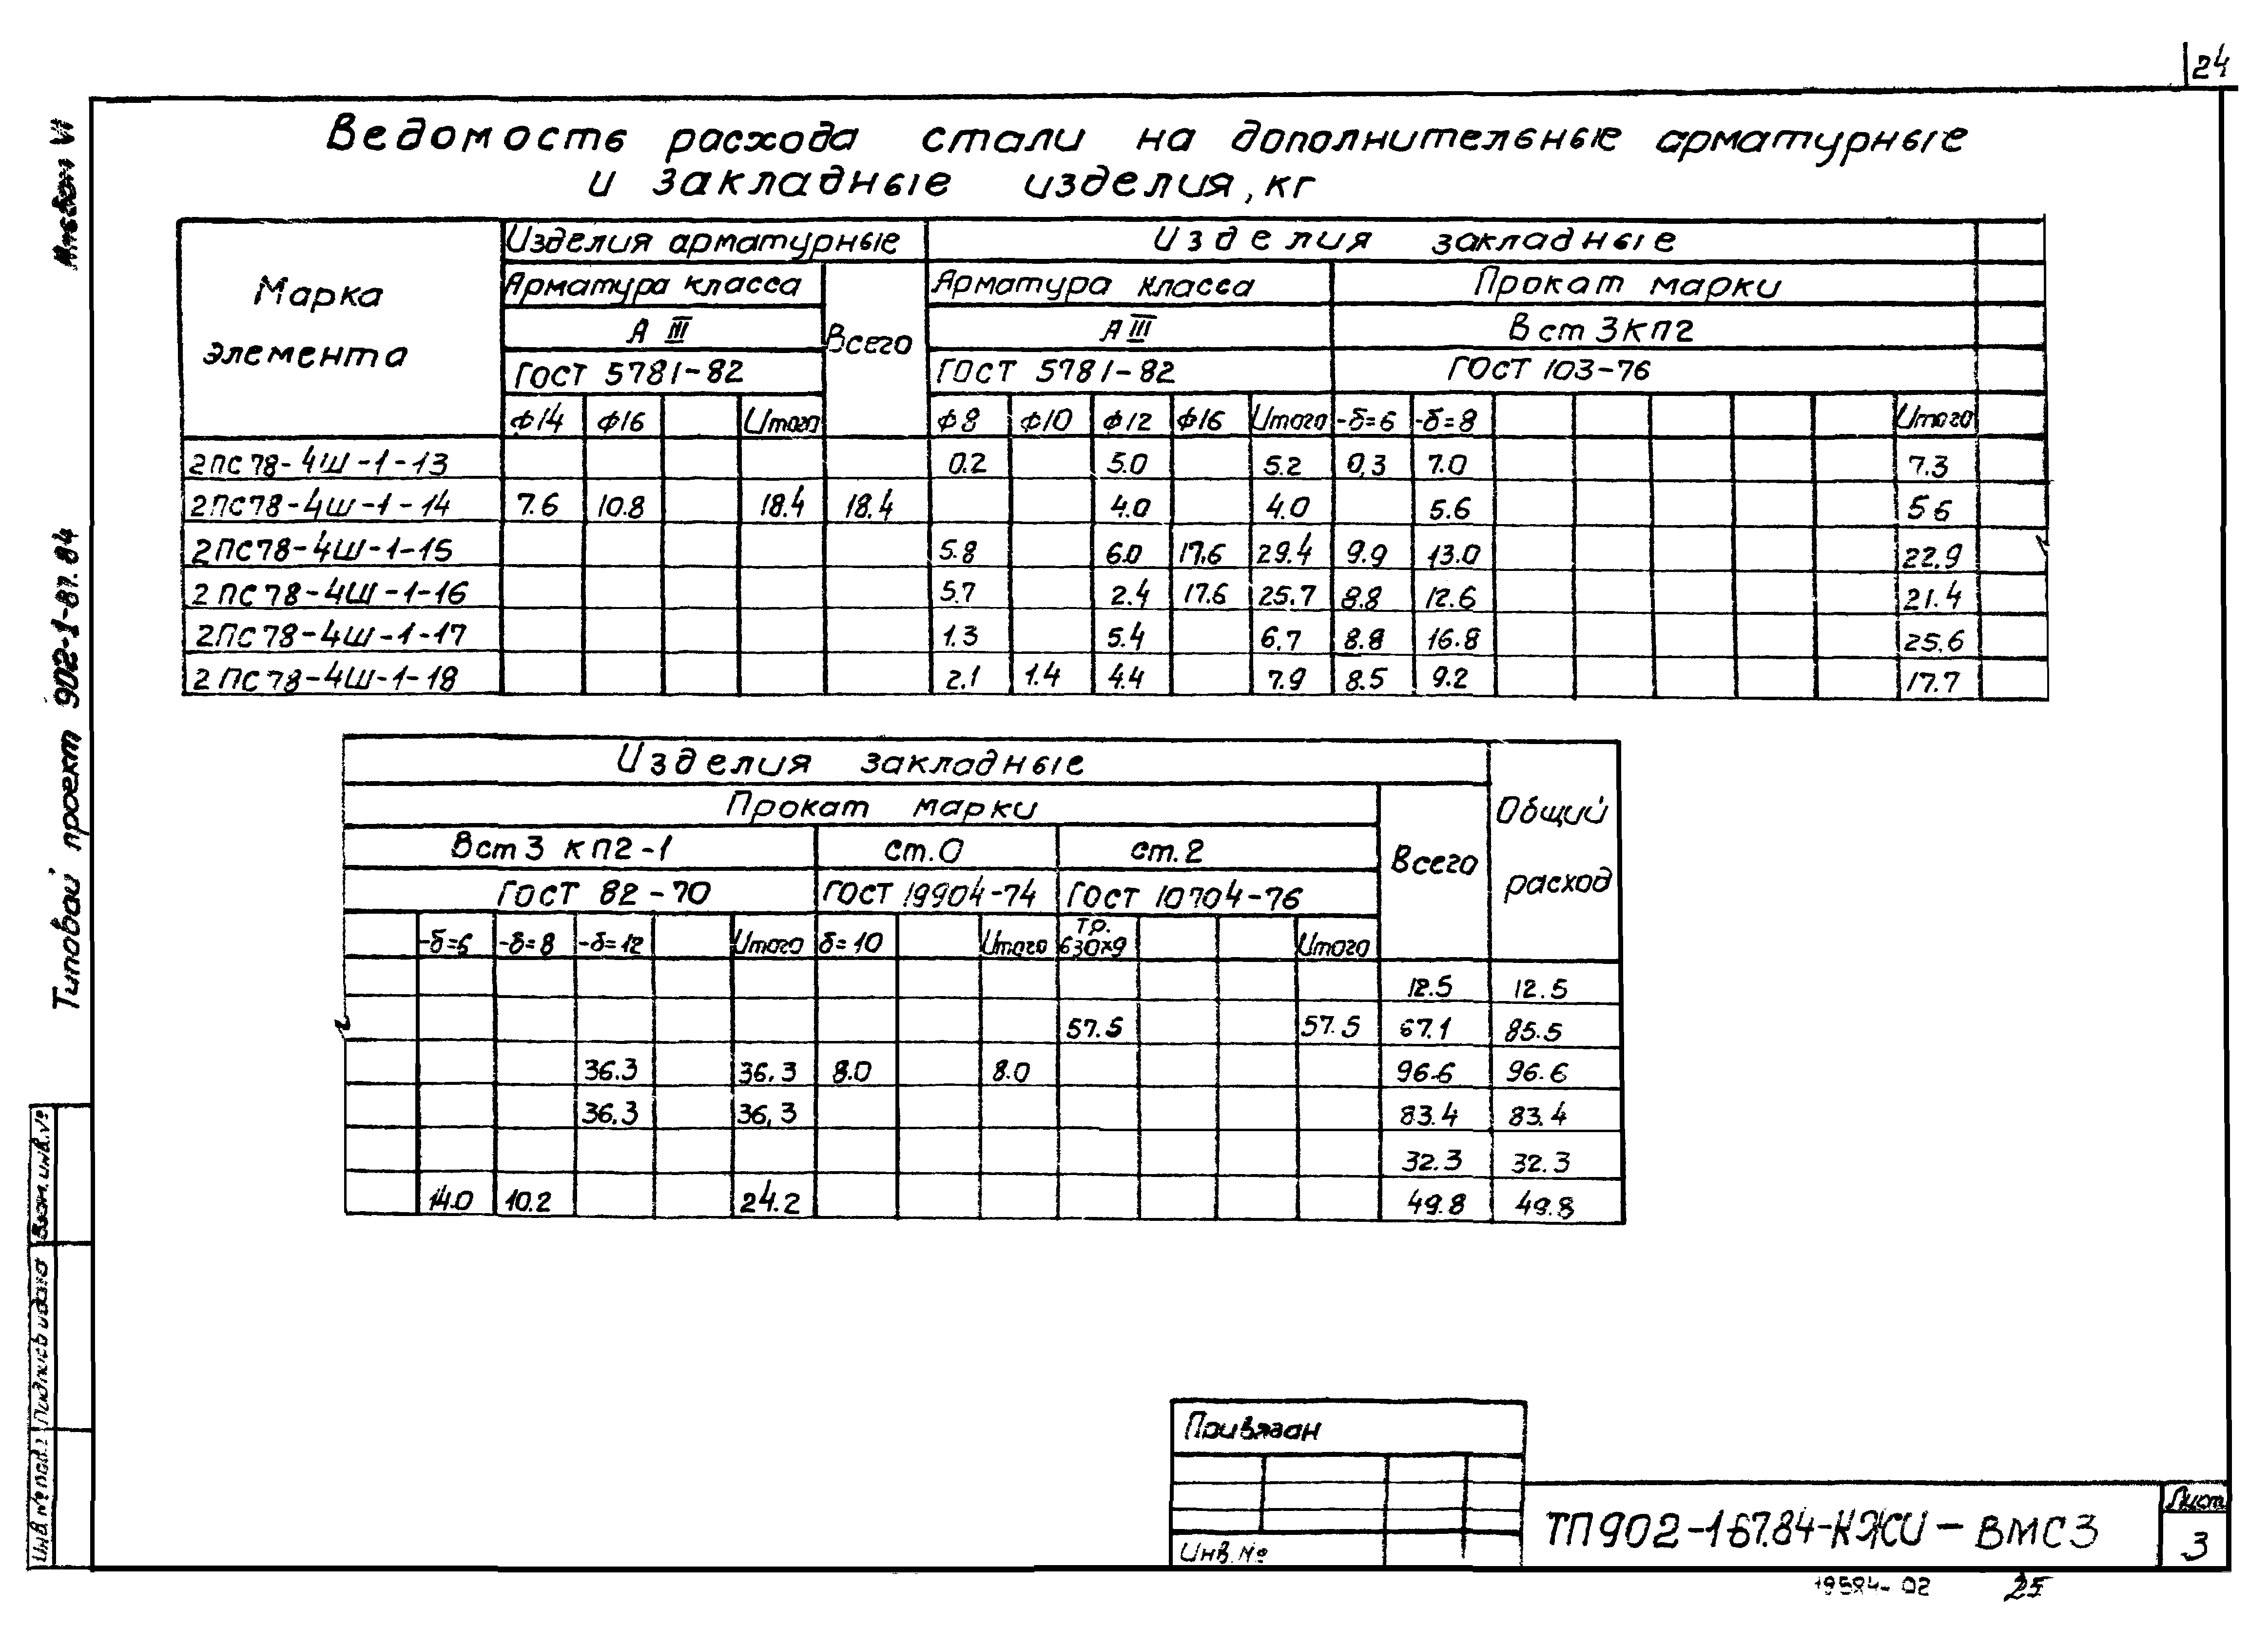 24
Ведомость расхода стали на дополнительные арматурные
и закладные изделия, кг
Марка элемента
Изделия арматурные
Изделия закладные
Арматура класса
Всего
Арматура класса
Прокат марки
А III
А III
Вст3кп2
ГОСТ 5781-82
ГОСТ 5781-82
ГОСТ 103-76
ф14 ф16 Итого ф8 ф10 ф12 ф16 Итого -δ=6 -δ=8 Итого
2ПС78-4Ш-1-13 0.2 5.0 5.2 0,3 7.0 7.3
2ПС78-4Ш-1-14 7.6 10.8 18.4 18.4 4.0 4.0 5.6 5 6
2ПС78-4Ш-1-15 5.8 6.0 17.6 29.4 9.9 13.0 22.9
2ПС78-4Ш-1-16 5.7 2.4 17.6 25.7 8.8 12.6 21.4
2ПС78-4Ш-1-17 1.3 5.4 6.7 8.8 16.8 25.6
2ПС78-4Ш-1-18 2.1 1.4 4.4 7.9 8.5 9.2 17.7
Изделия закладные
Общий расход
Прокат марки
Всего
Вст3 кп2-1 ст.0 ст.2
ГОСТ 82-70 ГОСТ 19904-74 ГОСТ 10704-76
-δ=6 -δ=8 -δ=12 Итого δ=10 Итого тр. 630х9 Итого
12.5 12.5
57.5 57.5 67.1 85.5
36.3 36.3 8.0 8.0 96.6 96.6
36.3 36,3 83.4 83.4
32.3 32.3
14.0 10.2 24.2 49.8 49.8
Привязан
Инв. №
ТП902-1-67.84-КЖИ-ВМС3
Лист
3
19584-02 25
VI
Типовой проект 902-1-87.84
Взам. инв. №
Подпись и дата
Инв. № подл.